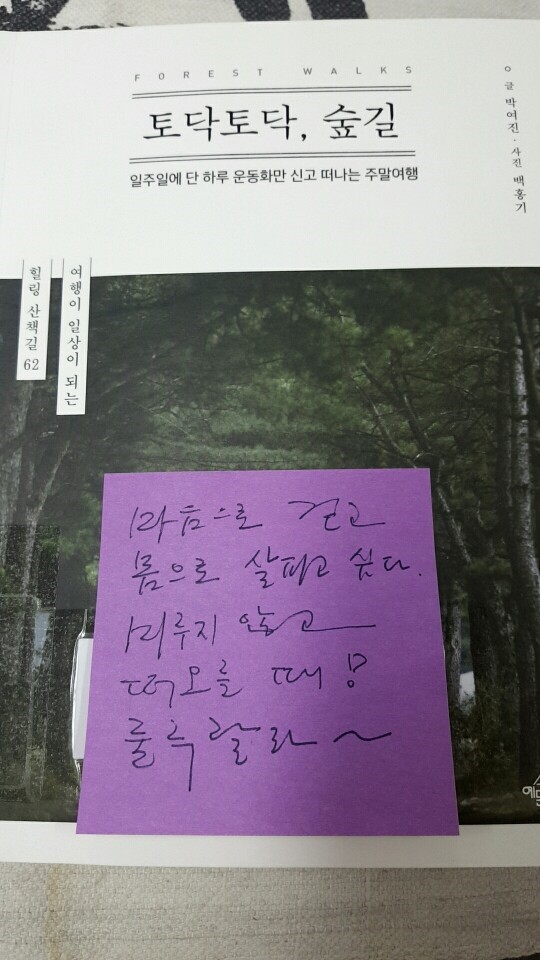 FOREST WALKS
토닥토닥, 숲길
일주일에 단 하루 운동화만 신고 떠나는 주말여행
글 박여진 · 사진 백홍기
여행이 일상이 되는
힐링 산책길 62
마음으로 걷고
몸으로 살피고 싶다.
미루지 않고
떠오를 때!
룰루랄라~